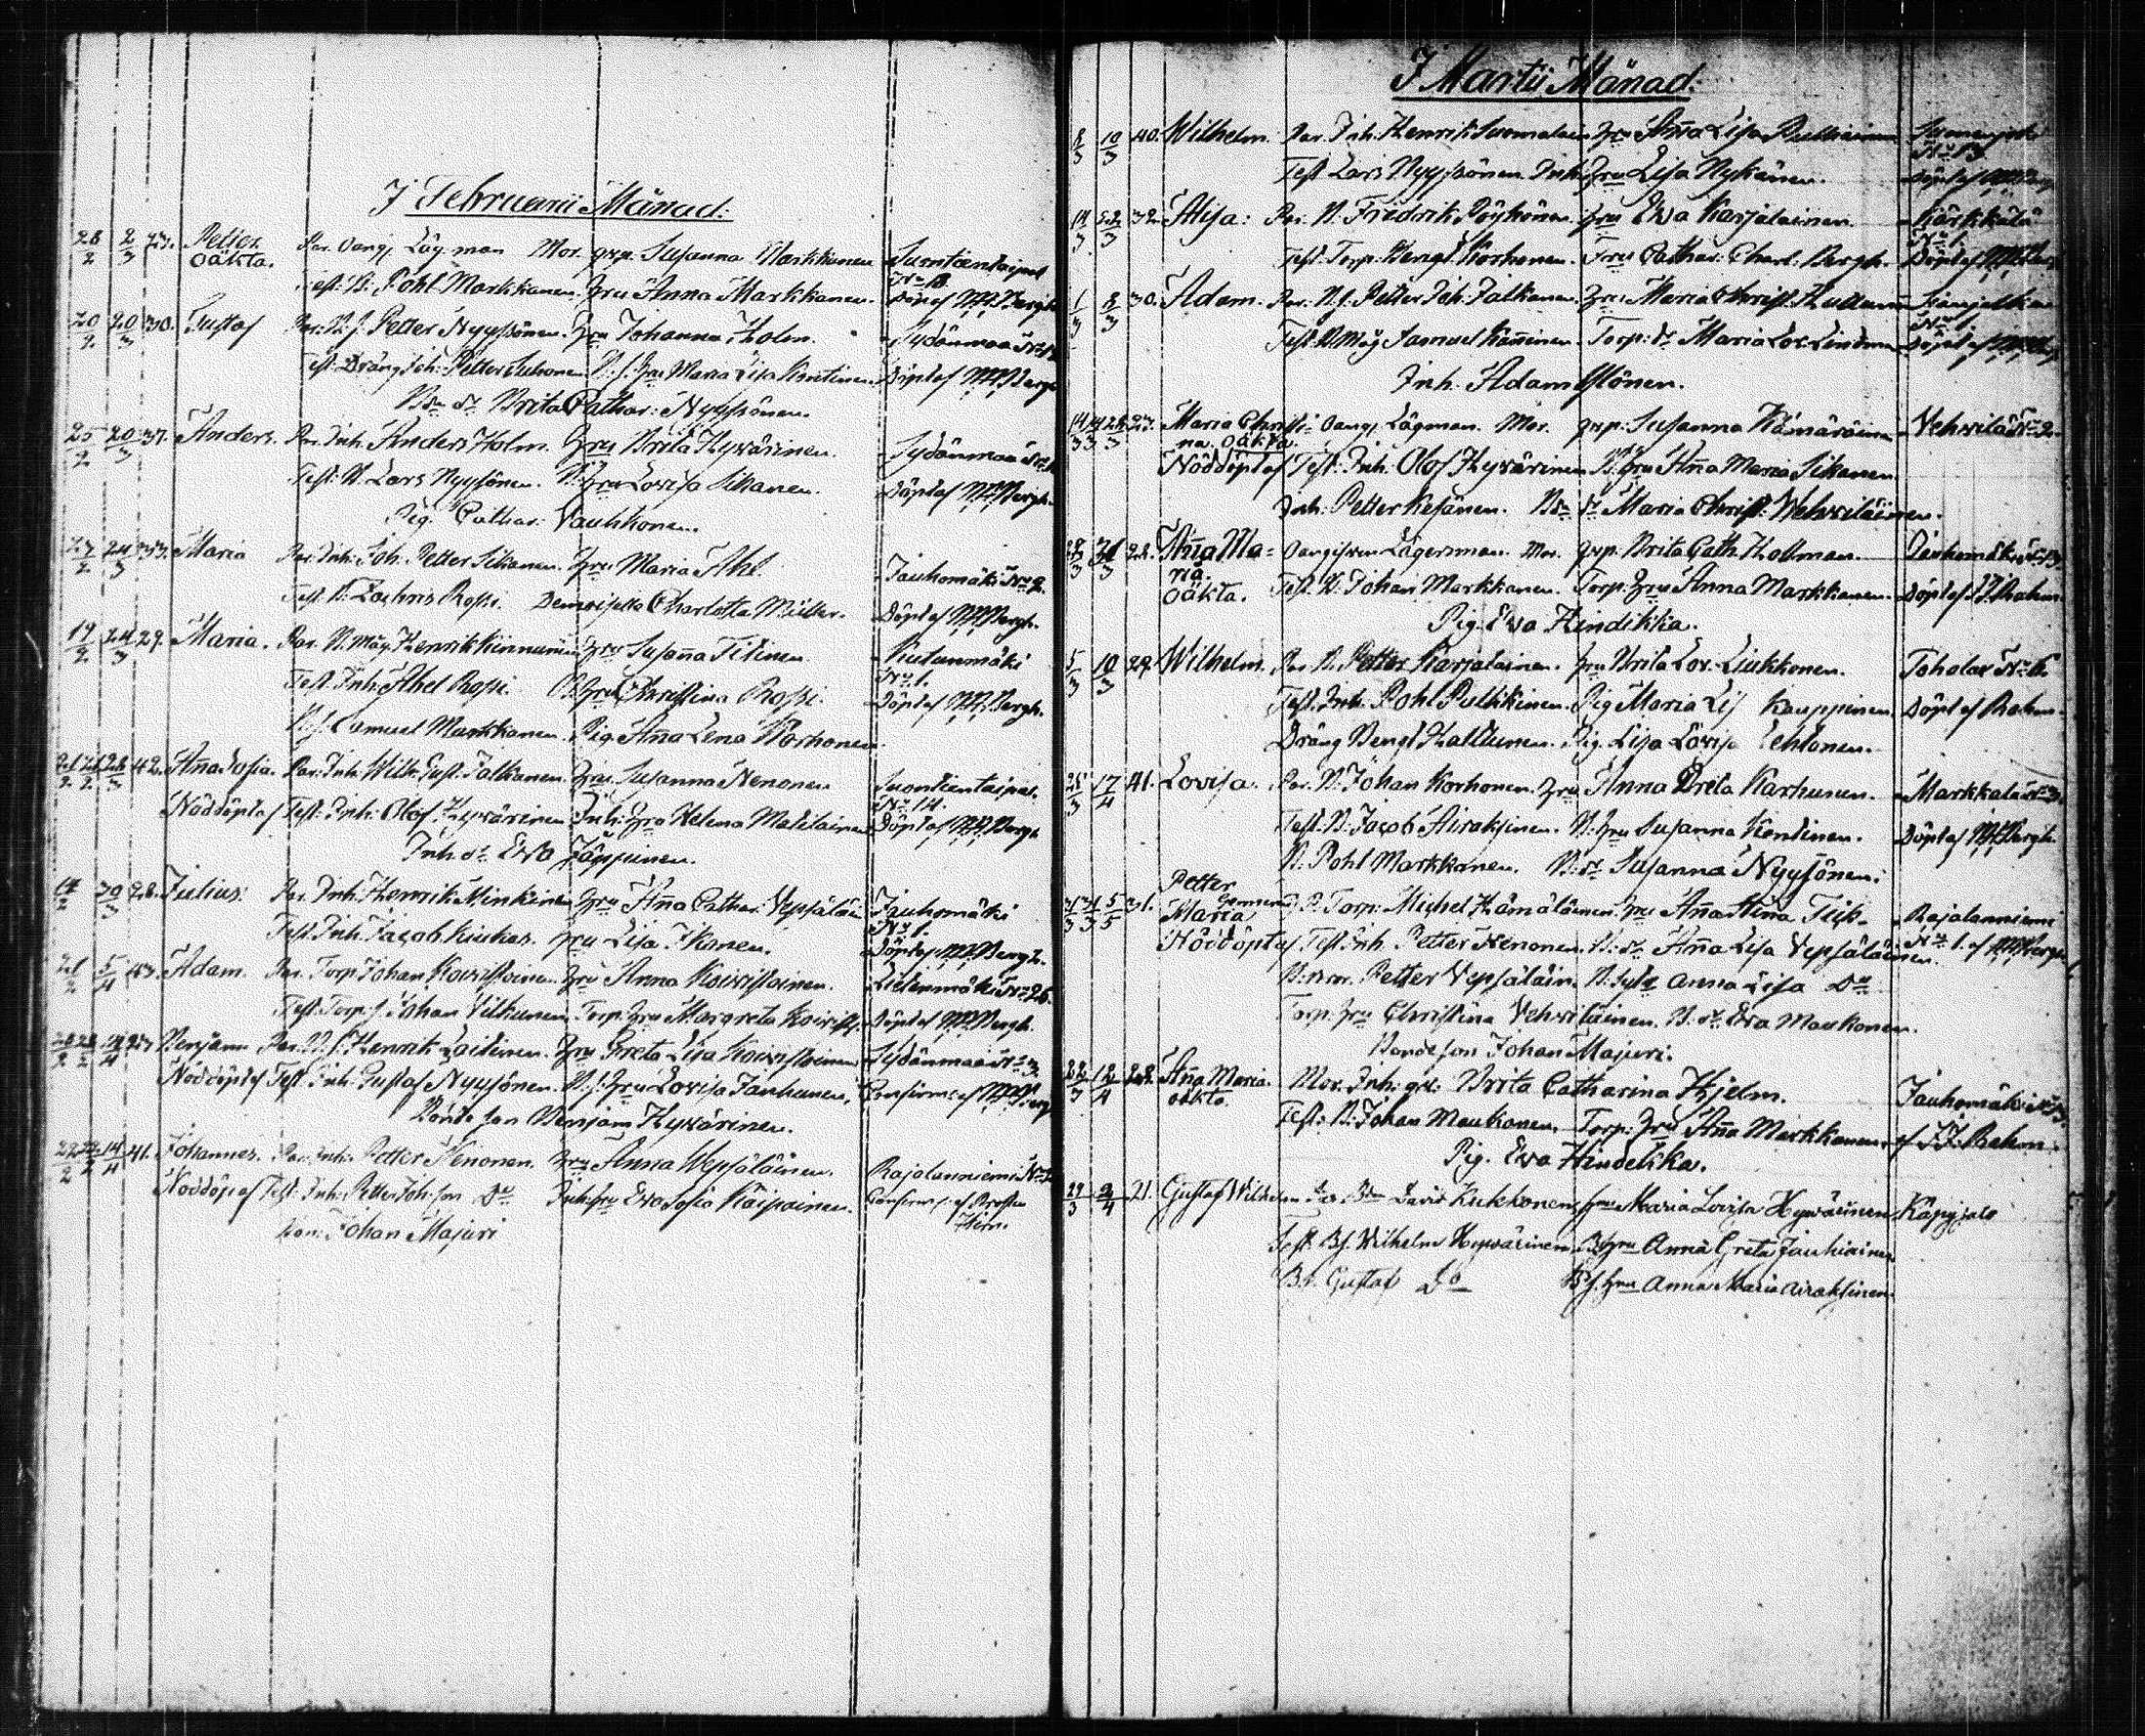 I Februarii Månad:
26/2 2/3 23. Petter. Par. Oangj. Lägsman Mor. qvp. Susanna Markkanen Suontientaipal
oäkta. Test: B. Pohl Markkanen. Hru Anna Markkanen. N:o 18.
Döpt af Bergh
20/2 20/3 30. Gustaf Par. B. J. Petter Nyyssönen. Hru Johanna Holm. Sydänmaa N:o
Test: Dräng Joh: Petter Suhonen B. J. Hru Maria Lisa Kontinen. Döpt af Bergh
Bde dr Brita Cathar: Nyyssönen.
25/2 20/3 37. Anders. Par. Inh. Anders Holm. Hru Brita Hyvärinen. Sydänmaa N:o
Test: B. Lars Nyyssönen. B. Hru Lovisa Sikanen. Döpt af Bergh.
Pig. Cathar: Vauhkonen.
27/2 24/3 33. Maria Par. Inh: Joh. Petter Sikanen. Hru Maria Ahl. Jauhomäki N:o 2.
Test. B. Zachris Rossi. Demoiselle Charlotta Müller. Döpt af Bergh.
19/2 24/3 29. Maria. Par. B. måg. Henrik Kinnunen Hru Susanna Titinen Kutunmäki
N:o 1.
Test. Inh: Abel Rossi. B. Hru Christina Rossi. Döpt af Bergh.
B. J. Samuel Markkanen. Pig. Anna Lena Korhonen.
21/2 21/2 28/3 42. Anna Sofia. Par. Inh: Wilh. Gust. Jalkanen. Hru Susanna Nenonen Suontientaipal.
N:o 14.
Nöddöpt af Test: Inh: Olof Hyvärinen Inh: Hru Helena Matilainen Döpt af Bergh
Inh dr Eva Jäppinen.
14/2 30/3 28. Julius. Par. Inh: Henrik Minkinen Hru Anna Cathar: Vepsäläin Jauhomäki
Test. Inh: Jacob Kiukas. Hru Lisa Ikonen. N:o 1.
Döpt af Bergh.
21/2 5/4 43. Adam. Par. Torp Johan Koivistoinen Hru Anna Koivistoinen. Lietenmäki N:o 26.
Test. Torp: J. Johan Vilkunen Torp: Hru Margreta Koivist. Döpt af Bergh.
28/2 28/2 14/4 23 Benjam Par. B. J. Henrik Laitinen. Hru Greta Lisa Koivistoinen Sydänmaa N:o 3
Nöddöpt af Test. Inh: Gustaf Nyyssönen. B. J. Hru Lovisa Jauhiainen, Confirm: af Bergh
Bonde son Benjam Hyvärinen.
22/2 22/2 14/4 41. Johannes. Par. Inh: Petter Nenonen. Hru Anna Wepsäläinen. Rajalanniemi N:o
Nöddöpt af Test. Inh: Petter Joh. son Do Inh: Hru Eva Sofia Räisäinen. Confirm: af Prosten
Hirn.
Johan Majuri
I Martii Månad:
8/3 10/3 40. Wilhelm. Par. Inh. Henrik Suomalain Hru Anna Lisa Pulliainen Suonenjoki
N:o 13.
Test Lars Nyyssönen. Inh: Hru Lisa Nykänen. Döpt af Bergh
32. Alisa: Par. B. Fredrik Pöyhönen. Hru Eva Karjalainen. Kärkkälä
N:o 1.
Test. Torp: Bengt Korhonen. Fru Cathar: Charl: Bergh. Döpt af Bergh
1/3 8/3 30. Adam. Par. B. J. Petter Joh. Jalkanen. Hru Maria Christ. Huttunen
N:o 1.
Test. B. måg Samuel Kaninen. Torp: dr Maria Lov. Lindman Döpt af Bergh
Inh: Adam Ylönen.
14/3 14/3 28/3 23. Maria Christi- Oangj. Lägsman. Mor. qvp. Susanna Kämäräinen Vehvilä N:o 2.
na. oäkta.
Nöddöpt af Test: Inh: Olof Hyvärinen B. Hru Anna Maria Sikanen.
Inh: Petter Kesänen. Bde dr Maria Christ. Wehviläinen.
28/3 31/3 22. Anna Ma- Oangifven Lägersman. Mor. qvp. Brita Cath. Hollman. Jauhomäki N:o 13.
ria.
oäkta. Test. B. Johan Markkanen. Torp. Hru Anna Markkanen. Döpt af J. J. Rahm
Pig. Eva Hindikka.
5/3 10/3 22. Wilhelm. Par. B. Petter Karjalainen. Hru Brita Lov. Liukkonen. Toholax N:o 6.
Test. Inh. Pohl Pulkkinen. Pig Maria Lis Kauppinen. Döpt af Rahm.
Dräng Bengt Halttunen. Pig. Lisa Lovisa Lehtonen.
25/3 17/4 41. Lovisa. Par. B. Johan Korhonen. Hru Anna Brita Karhunen. Markkala N:o 3.
Test. B. Jacob Airaksinen. B. Hru Susanna Kontinen. Döpt af Bergh.
B. Pohl Markkanen. B. dr Susanna Nyyssönen.
Petter
31/3 31/3 5/5 31. Maria Gemini P. Torp: Michel Hämäläinen. Hru Anna Stina Tick- Rajalanniemi
Nöddöpt af Test. Inh. Petter Nenonen. B. dr Anna Lisa Vepsäläinen. N:o 1. af Bergh
B. bror. Petter Vepsäläin. B. syst Anna Lisa Do
Torp: Hru Christina Vehviläinen. B. dr Eva Maukonen.
Bonde son Johan Majuri.
22/3 12/4 28. Anna Maria. Mor. Inh: qd. Brita Catharina Hjelm. Jauhomäki N:o 13.
oäkta.
Test: B. Johan Maukonen. Torp: Hru Anna Markkanen. af J. J. Rahm.
Pig. Eva Hindekka.
29/3 2/4 21. Gustaf Wilhelm Par. Bde David Kukkonen, hru Maria Lovisa Hyvärinen. Käpysalo
Test. Bs. Wilhelm Hyvärinen. B. hru Anna Greta Jauhiainen
Bs. Gustaf Do Bs. hru Anna Maria Airaksinen.